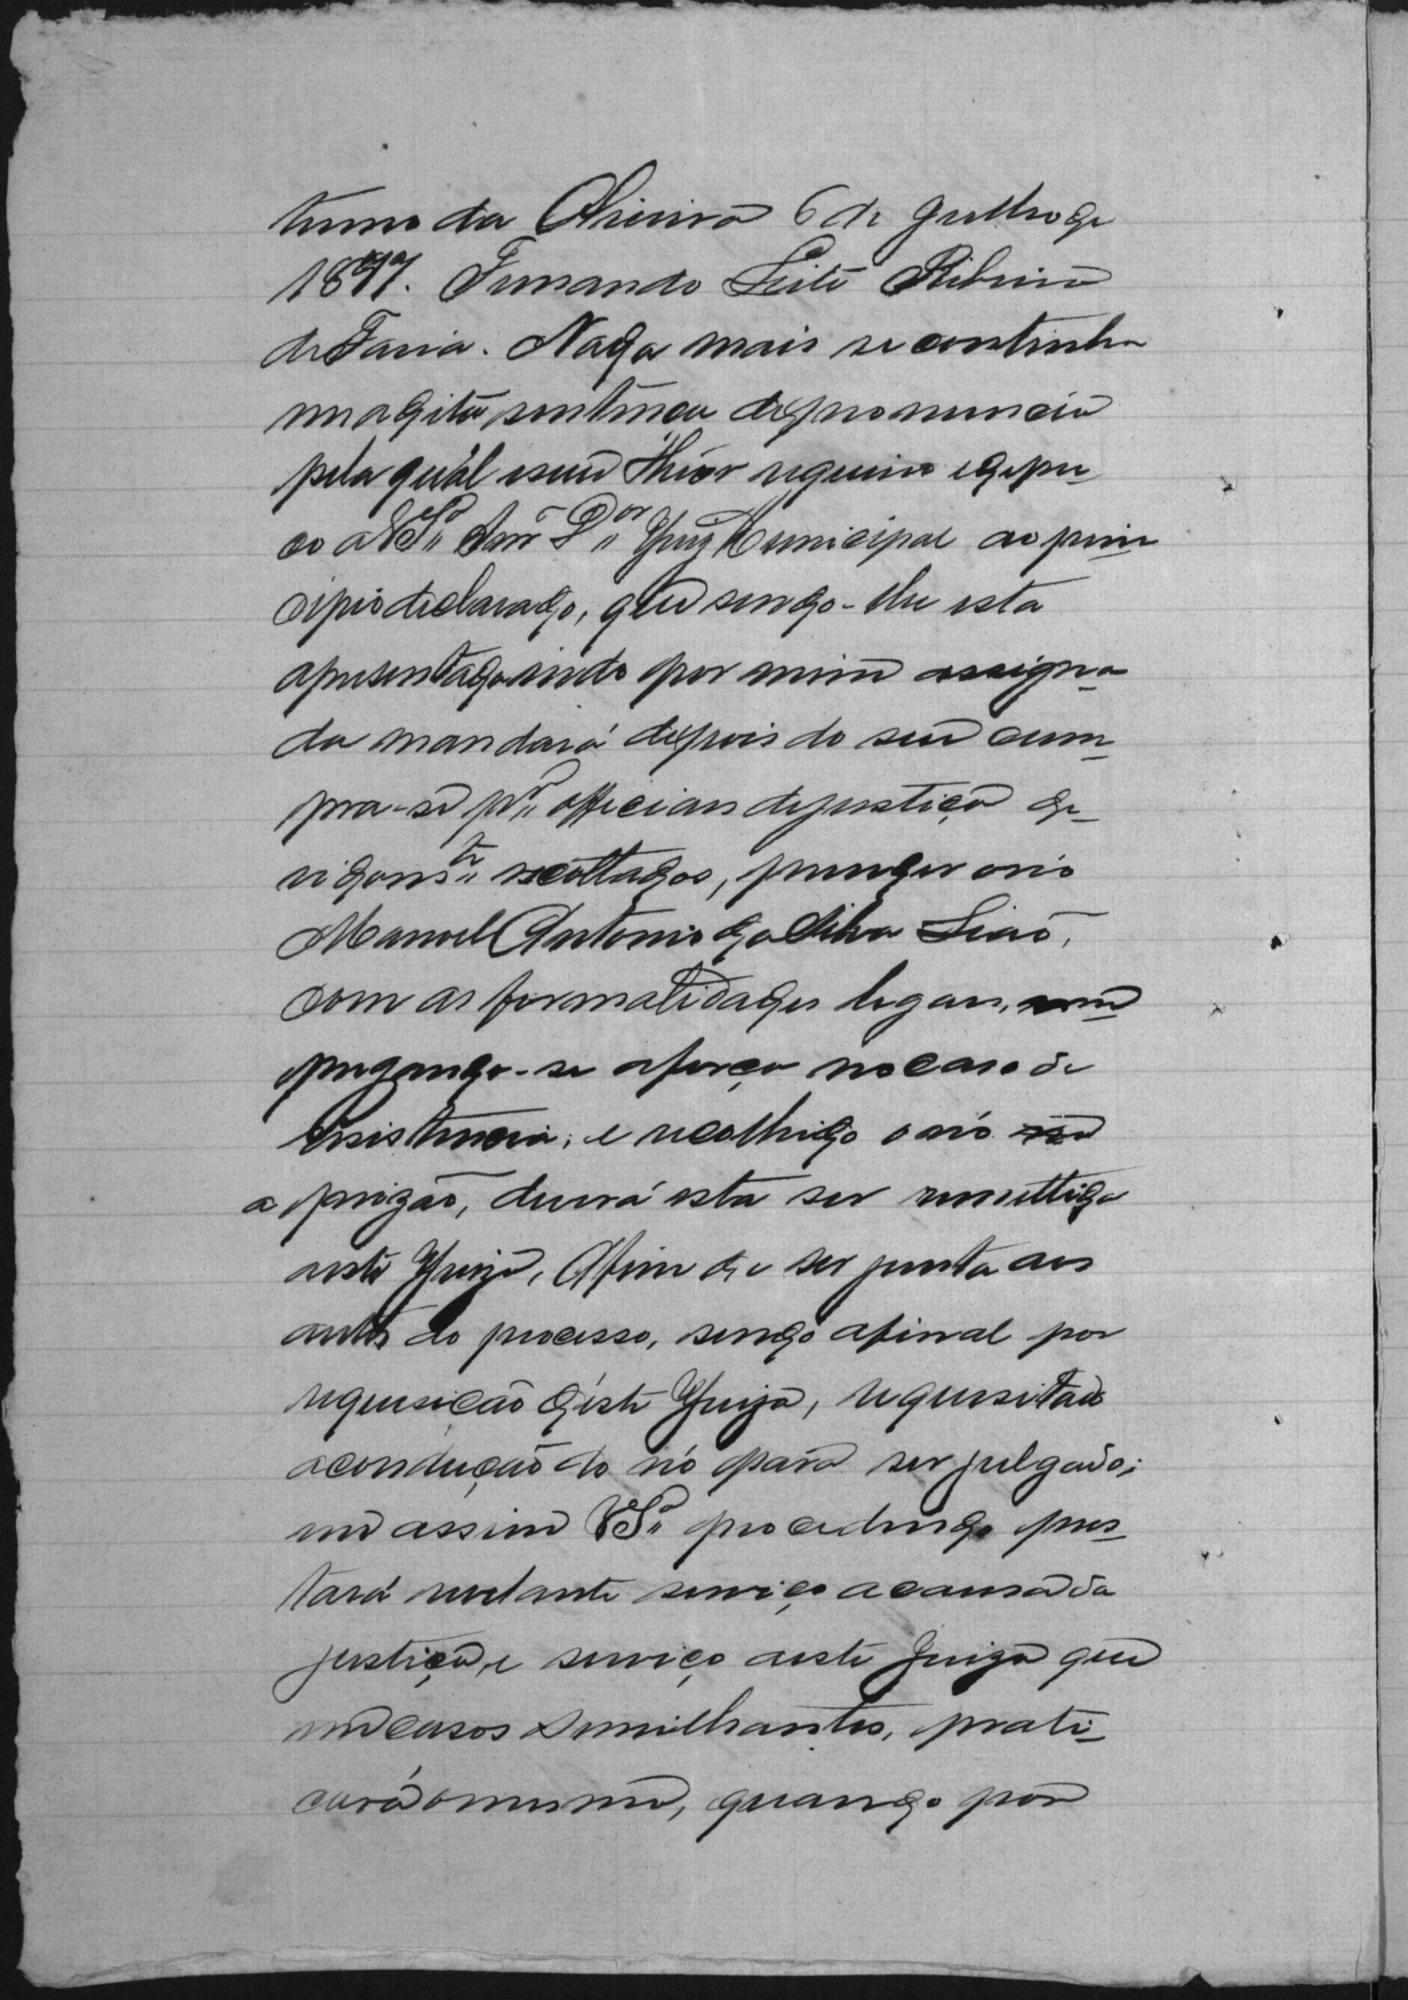 termo da Oliveira 6 de Julho de
1897. Fernando Leite Ribeiro
de Faria. Nada mais se continha
em a dita sentença de pronuncia
pela quál e seu theôr requeiro e depre
co a VSª Snr̃ Dor Juiz Municipal ao prin
cipio declarado, que sendo-lhe esta
apresentada indo por mim assigna
da mandará depois do seu cum
pra-se prª officiaes de justiça de
vidamte escoltados, prender o réo
Manoel Antonio da Silva Leão,
com as formalidades legaes, em
pregando-se a força no caso de
resistencia; e recolhido o réo
a prizão, deverá esta ser remettida
a este Juizo, Afim de ser junta aos
autos do processo, sendo afinal por
requesicão d'éste Juizo, requesitado
a condução do réo para ser julgado;
em assim VSª procedendo pres
tará relevante serviço a causa da
justiça, e serviço a este Juizo que
em casos semilhantes, prati
cará o mesmo, quando por